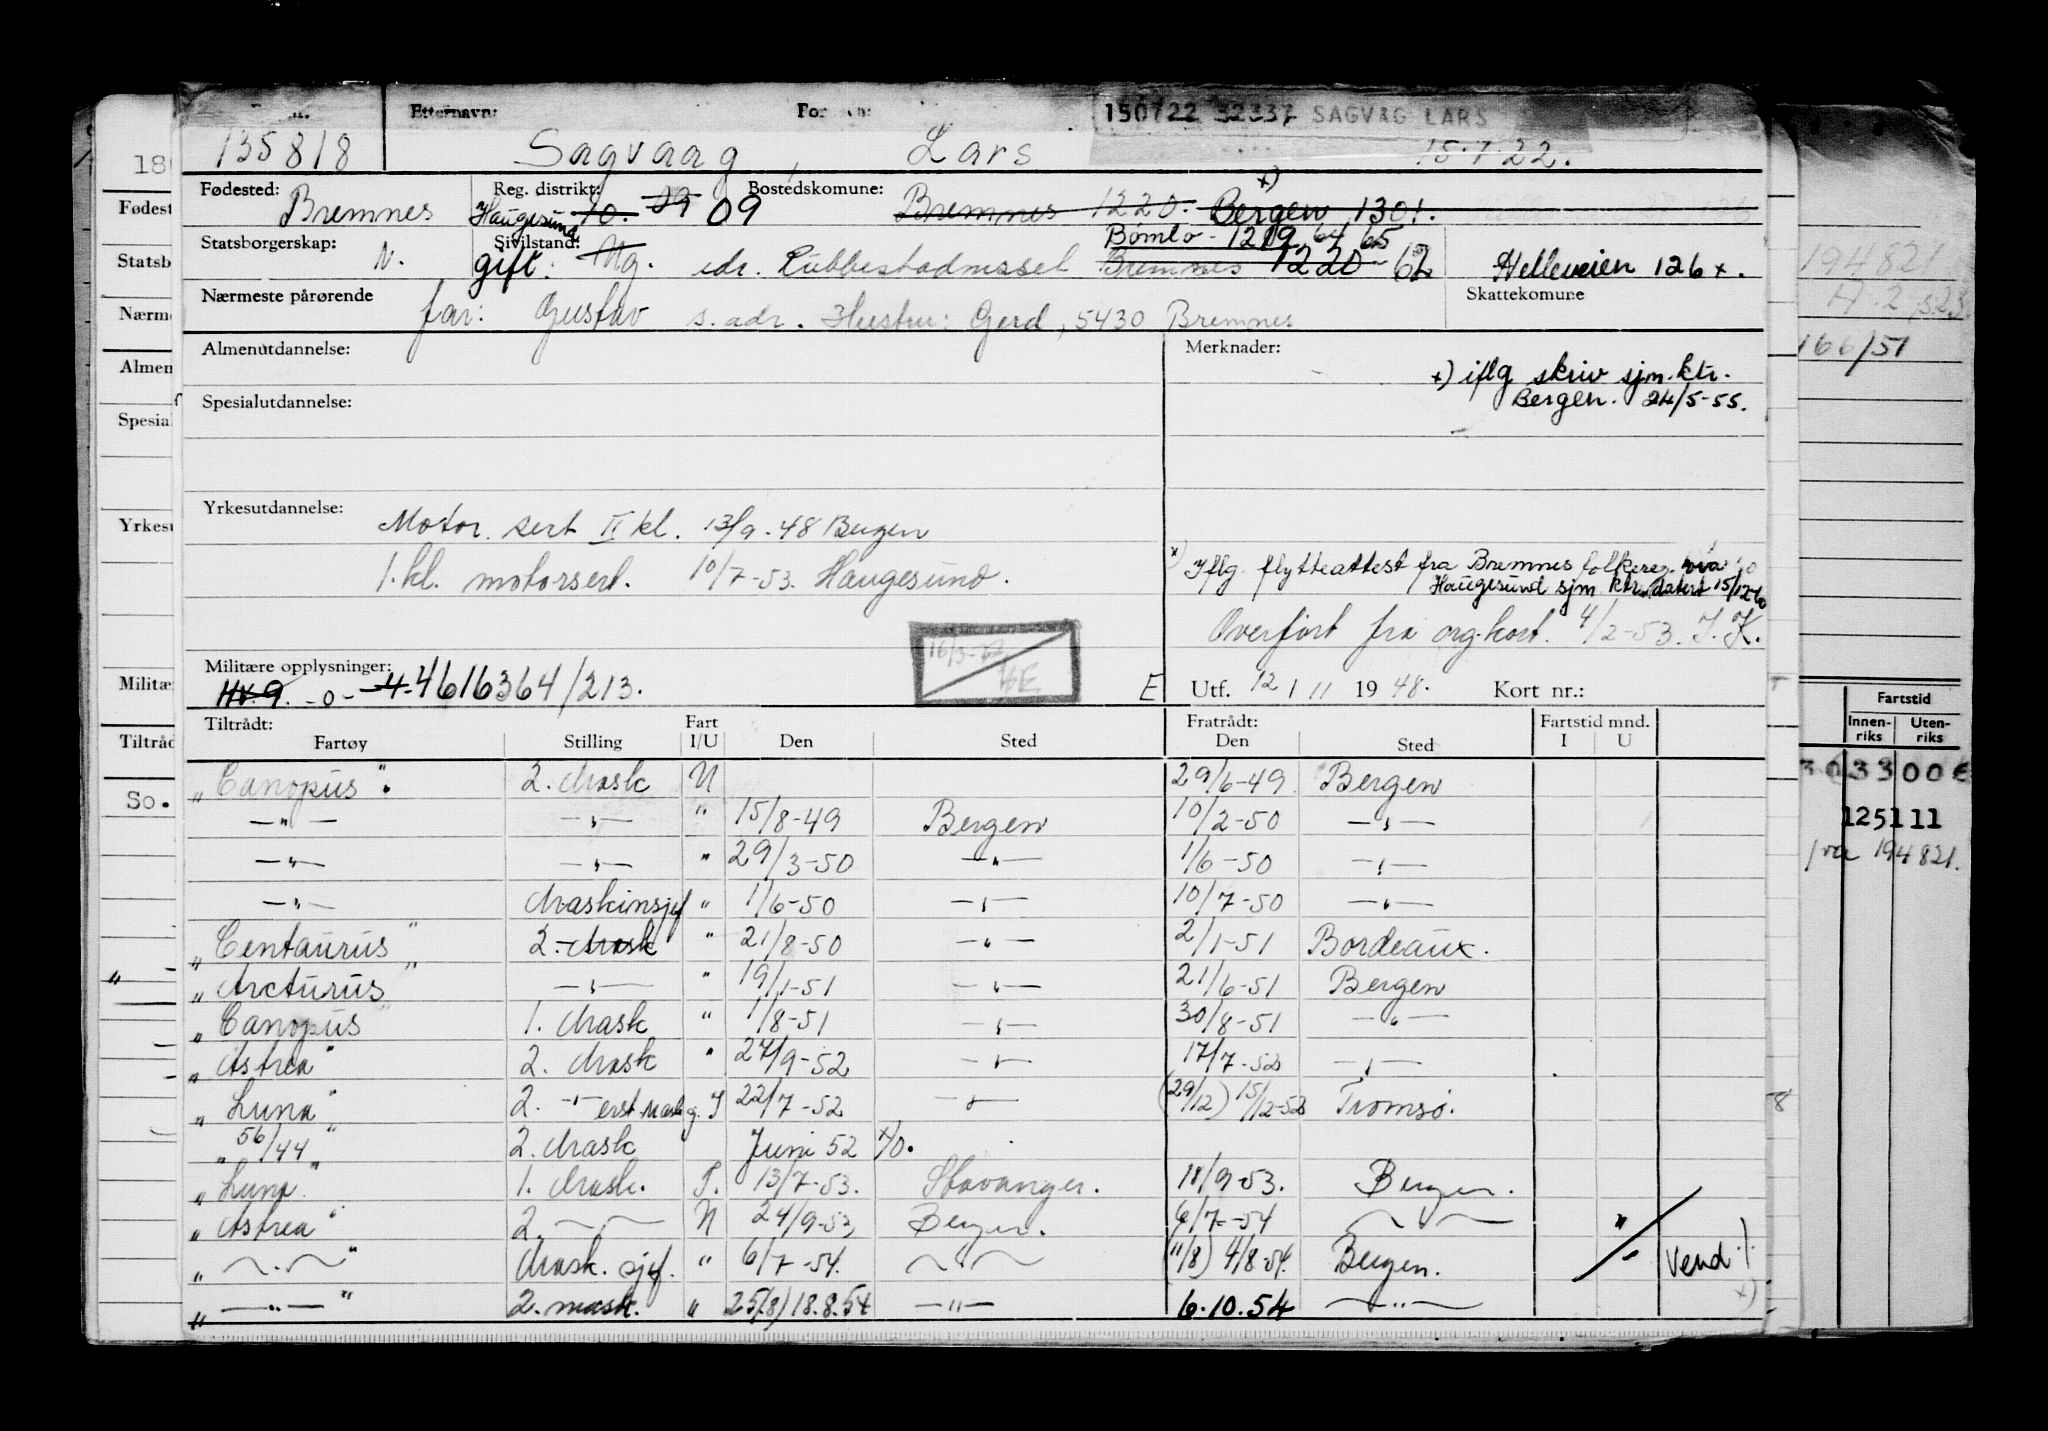 Etternavn: 150722 32337 SAGVåG LARS
135818 Sagvaag, Lars 15.7.22.
Fødested: Bremnes Reg. distrikt: Haugesund 10. 09 Bostedskomune: Bremnes 1220. Bergen 1301. x)
Bømlo - 1219 64 65
Statsborgerskap: N. Sivilstand: gift. Ug. adr. Rubbestadnessel Bremnes 1220 - 62 Helleveien 126 x.
Nærmeste pårørende far: Gustav s. adr. Hustru: Gerd, 5430 Bremnes Skattekomune
Almenutdannelse: Merknader:
x) iflg skriv sjm.ktr.
Bergen. 24/5-55.
Spesialutdannelse:
Yrkesutdannelse: Motor. sert II kl. 13/9-48 Bergen
1. kl. motorsert. 10/7-53. Haugesund.
x) Iflg. flytteattest fra Bremnes folkereg. via
Haugesund sjm. ktr. datert 15/12-60
Overført fra org.kort. 4/2-53. J.K.
Militære opplysninger: HV.9. -0- -4- 4616364/213.
E Utf. 12/11 1948. Kort nr.:
Tiltrådt: Fart Fratrådt: Fartstid mnd.
Fartøy Stilling I/U Den Sted Den Sted I U
"Canopus". 2. Mask U 29/6-49 Bergen
—"— —"— " 15/8-49 Bergen 10/2-50 —"—
—"— —"— " 29/3-50 —"— 1/6-50 —"—
—"— Maskinsjef " 1/6-50 —"— 10/7-50 —"—
"Centaurus" 2. Mask " 21/8-50 —"— 2/1-51 Bordeaux.
"Arcturus" —"— " 19/1-51 —"— 21/6-51 Bergen
"Canopus" 1. Mask " 1/8-51 —"— 30/8-51 —"—
"Astrea" 2. Mask " 27/9-52 —"— 17/7-52 —"—
"Luna" 2. —"— erst. Mask g. I 22/7-52 —"— (29/12) 15/12-52 Tromsø.
"56/44" 2. Mask Juni 52 x/o.
"Luna" 1. Mask. I. 13/7-53. Stavanger. 18/9-53. Bergen.
"Astrea" 2. —"— U 24/9-53, Bergen. 6/7-54 —"— "
"—"—" Mask. sjef. " 6/7-54. —"— (11/8) 4/8-54. Bergen. " Vend ./.
"—"—" 2. mask. " 25/8) 18.8.54 —"— 6.10.54 —"— x)
Fødest
Statsb
Nærm
Almen
Spesial
Yrkesu
Militæ
Tiltråd
So.
194821
166/51
Fartstid
Innen-riks Uten-riks
303300
125111
fra 194821.